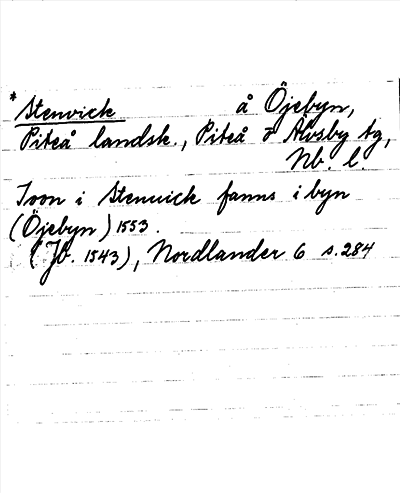 * Stenvick å Öjebyn,
Piteå landsk., Piteå o Älvsby tg,
Nb. l.
Ivon i Stenuick fanns i byn
(Öjebyn) 1553.
(Jb. 1543), Nordlander 6 s. 284